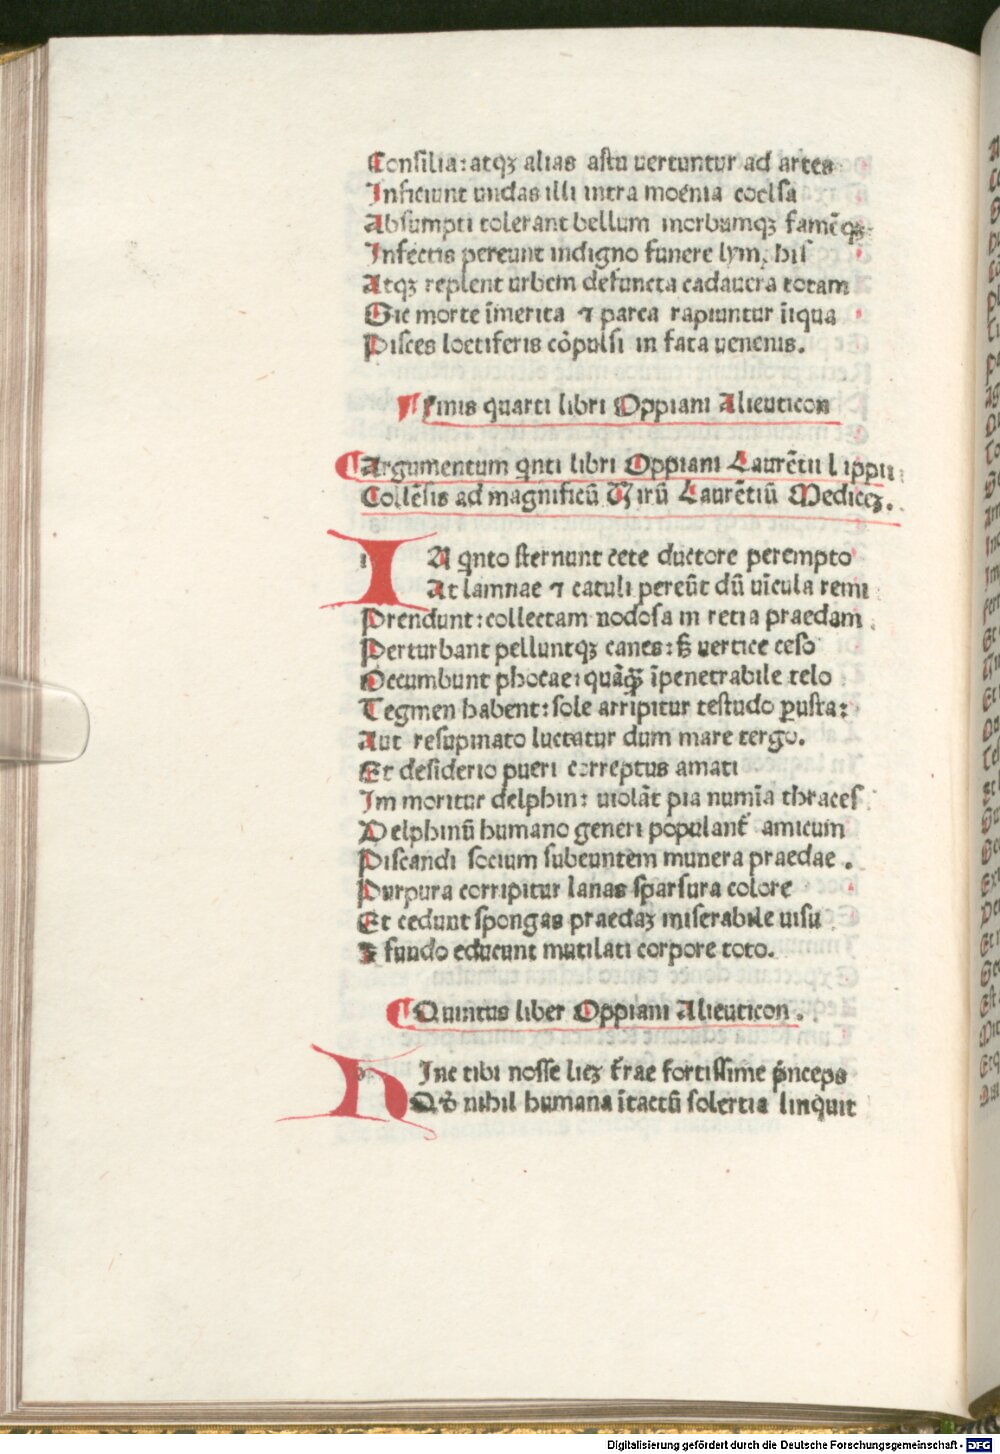 Consilia: atqꝫ alias astu uertuntur ad artes
Inficiunt undas illi intra moenia coelsa
Absumpti tolerant bellum morbumqꝫ famēqꝫ
Infectis pereunt indigno funere lym, his
Atqꝫ replent urbem defuncta cadauera totam
Sic morte īmerita ⁊ parca rapiuntur īiqua
Pisces loetiferis cōpulsi in fata uenenis.
Finis quarti libri Oppiani Alieuticon
Argumentum qnti libri Oppiani Laurētii Lippii
Collēsis ad magnificū Uirū Laurētiū Medicēꝫ.
IN qnto sternunt cete ductore perempto
At lamnae ⁊ catuli pereūt dū uīcula remi
Prendunt: collectam nodosa in retia praedam
Perturbant pelluntqꝫ canes: sꝫ uertice ceso
Occumbunt phocae: quāquā īpenetrabile telo
Tegmen habent: sole arripitur testudo ꝑusta:
Aut resupinato luctatur dum mare tergo.
Et desiderio pueri correptus amati
Im moritur delphin: uiolāt pia numīa thraces
Delphinū humano generi populant amicum
Piscandi socium subeuntem munera praedae.
Purpura corripitur lanas sparsura colore
Et cedunt spongas praedaꝫ miserabile uisu
E fundo educunt mutilati corpore toto.
Quintus liber Oppiani Alieuticon.
HInc tibi nosse licꝫ trae fortissime pnceps
Qd nihil humana ītactū solertia linquit
Digitalisierung gefördert durch die Deutsche Forschungsgemeinschaft - DFG